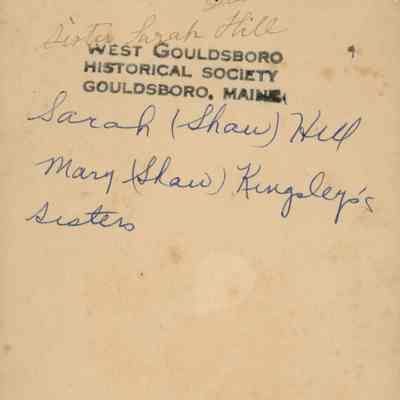 Sister Sarah Hill
WEST GOULDSBORO
HISTORICAL SOCIETY
GOULDSBORO, MAINE
Sarah (Shaw) Hill
Mary (Shaw) Kingsley's
sisters